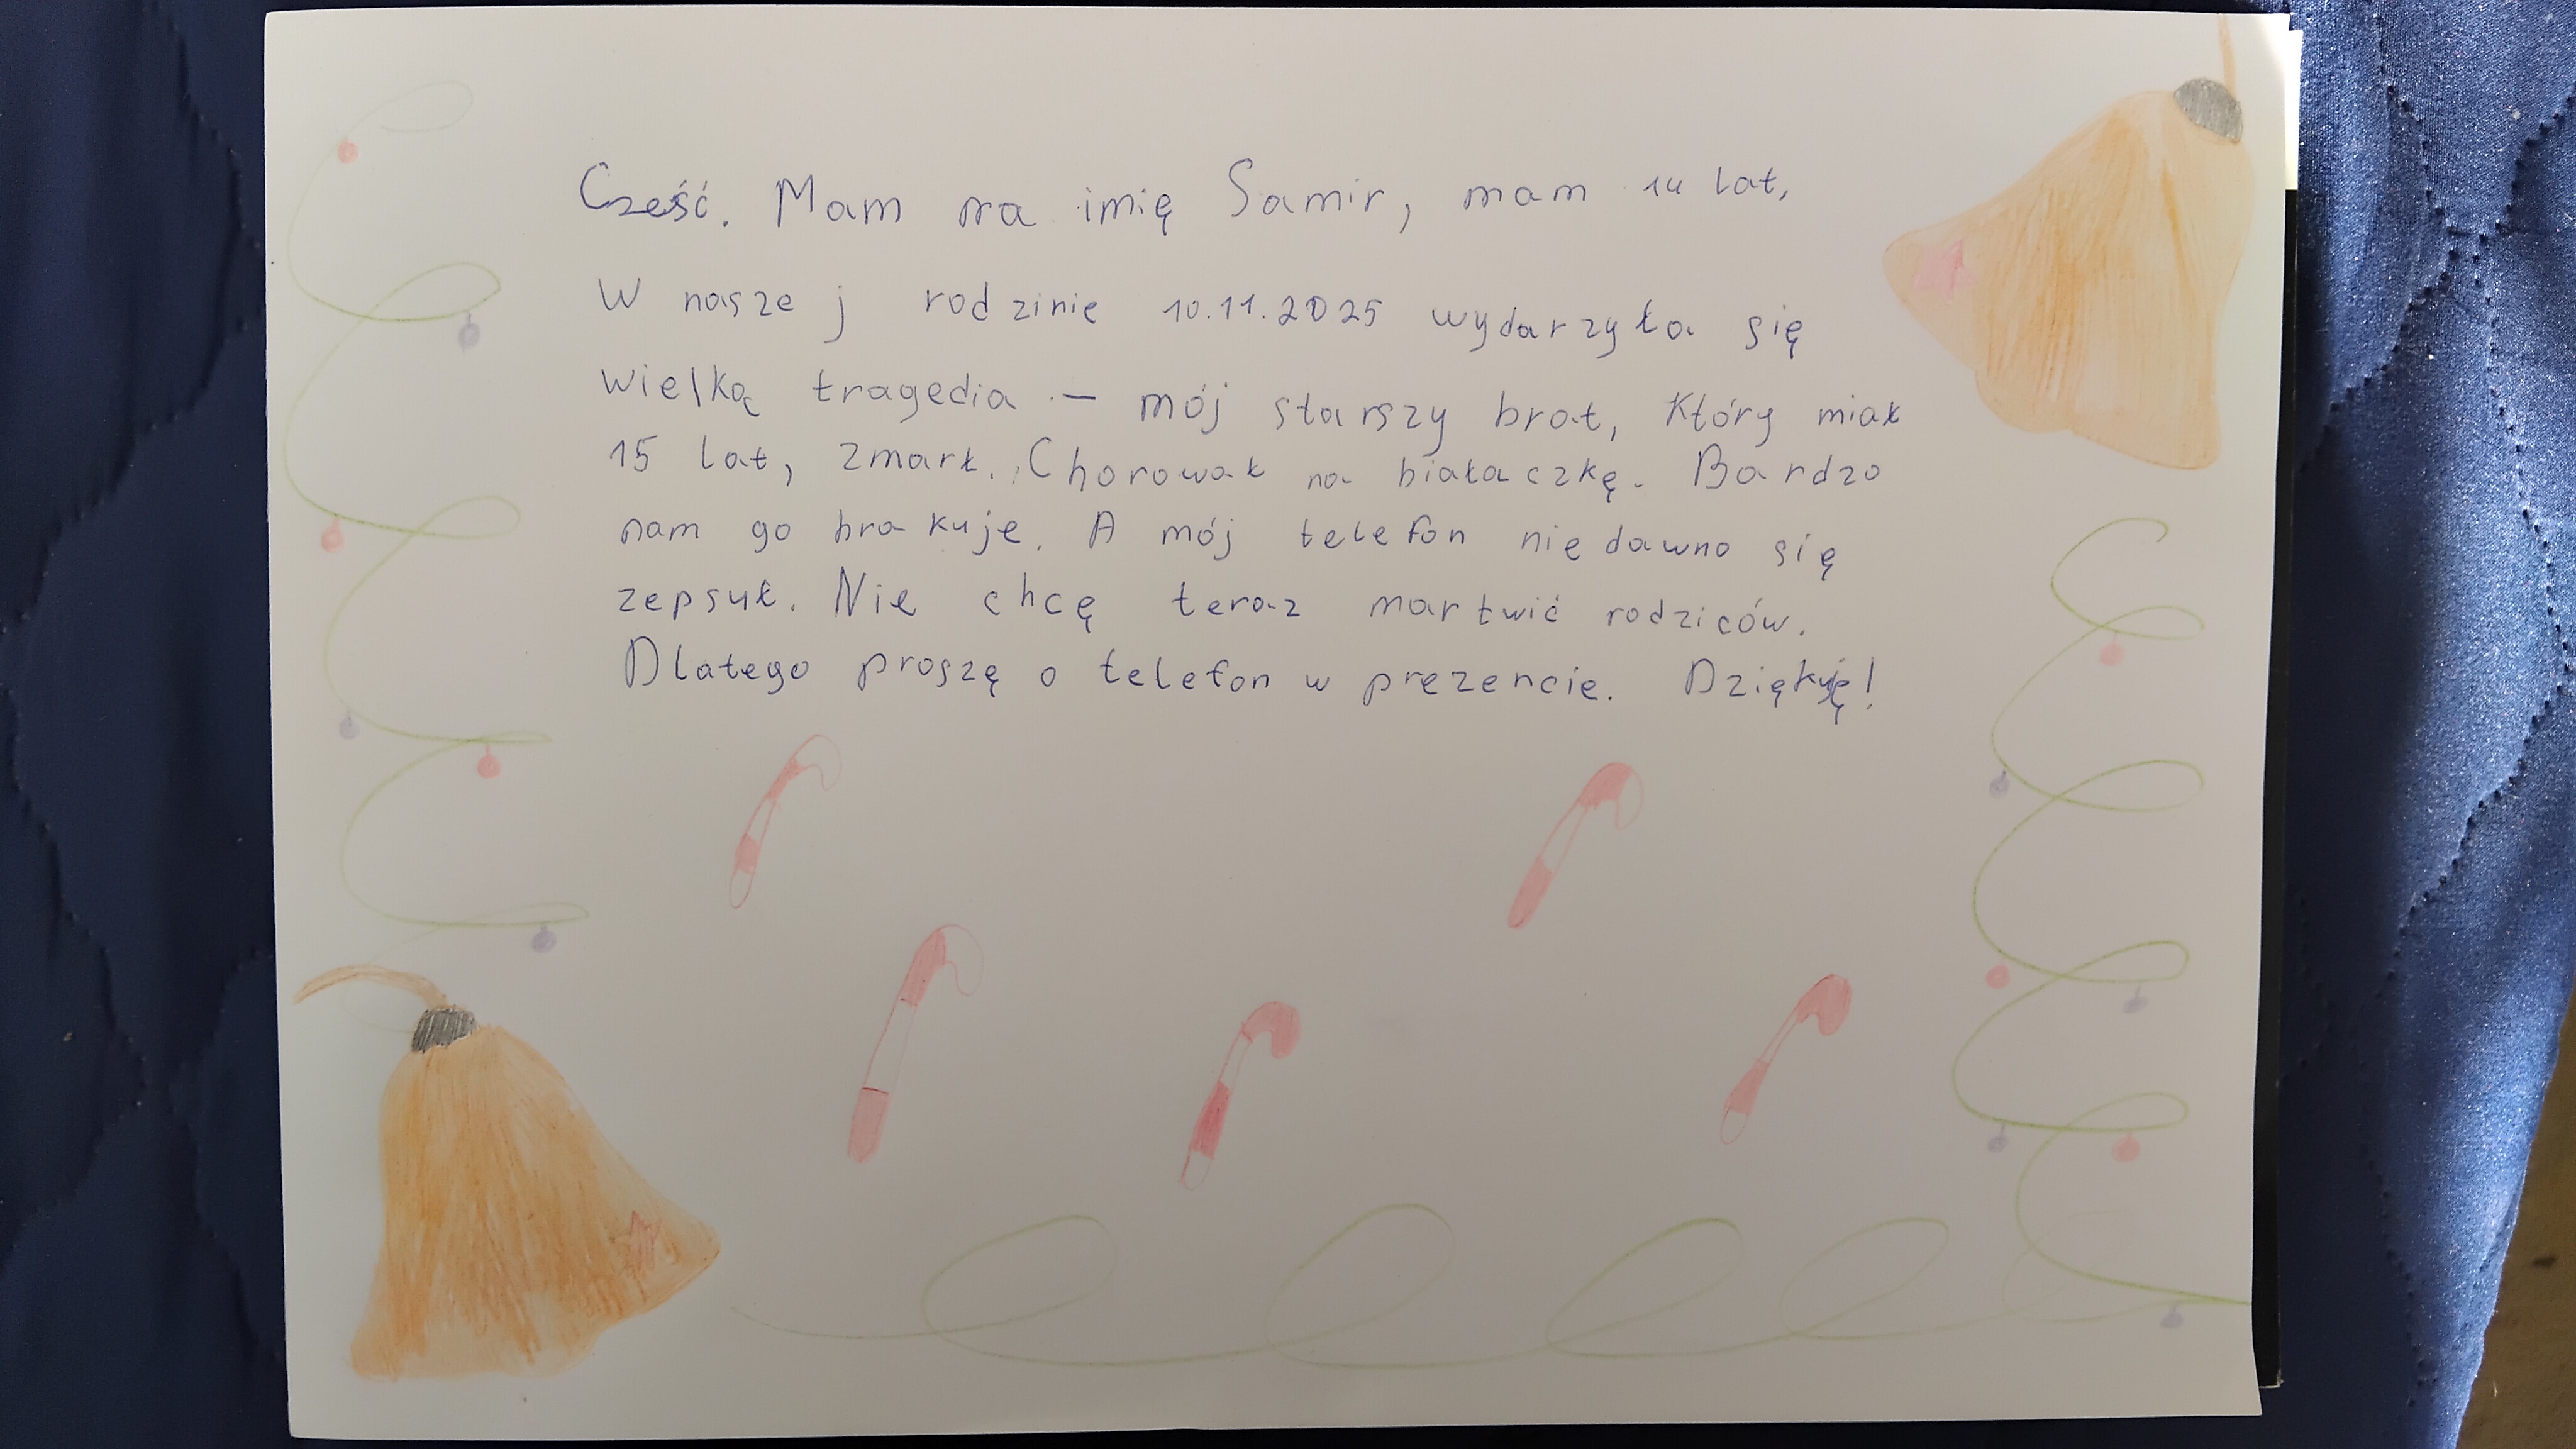 Cześć. Mam na imię Samir, mam 14 lat,
W naszej rodzinie 10.11.2025 wydarzyła się
wielką tragedia - mój starszy brat, który miał
15 lat, zmarł. Chorował na białaczkę. Bardzo
nam go brakuje. A mój telefon niedawno się
zepsuł. Nie chcę teraz martwić rodziców.
Dlatego proszę o telefon w prezencie. Dziękuję!